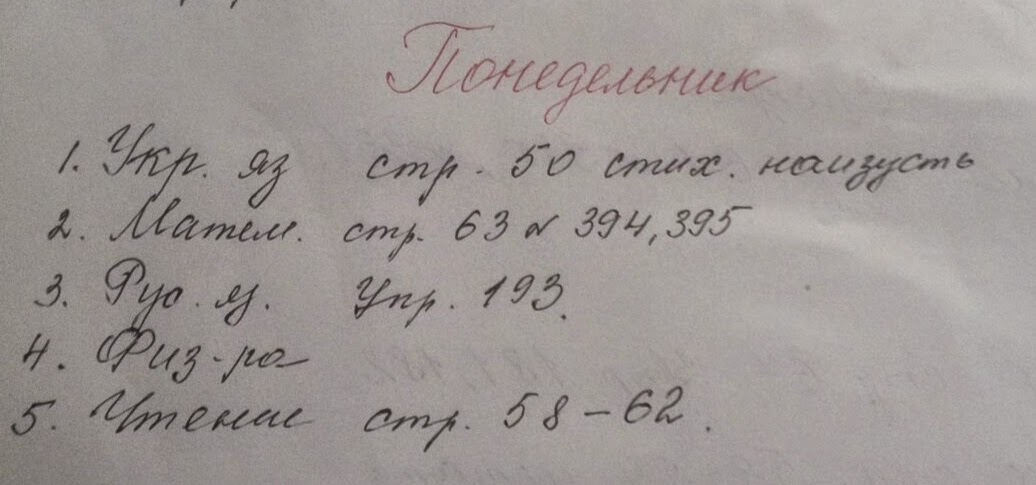 Понедельник
1. Укр. яз стр. 50 стих. наизусть
2. Матем. стр. 63 № 394, 395
3. Рус. яз. Упр. 193.
4. Физ-ра
5. Чтение стр. 58 – 62.